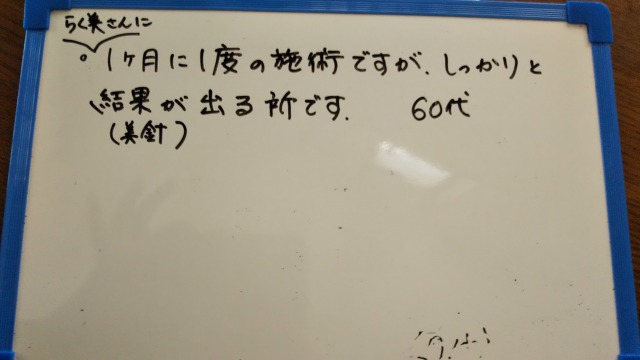 らく美さんに
。1ヶ月に1度の施術ですが、しっかりと
結果が出る所です. 60代
(美針)